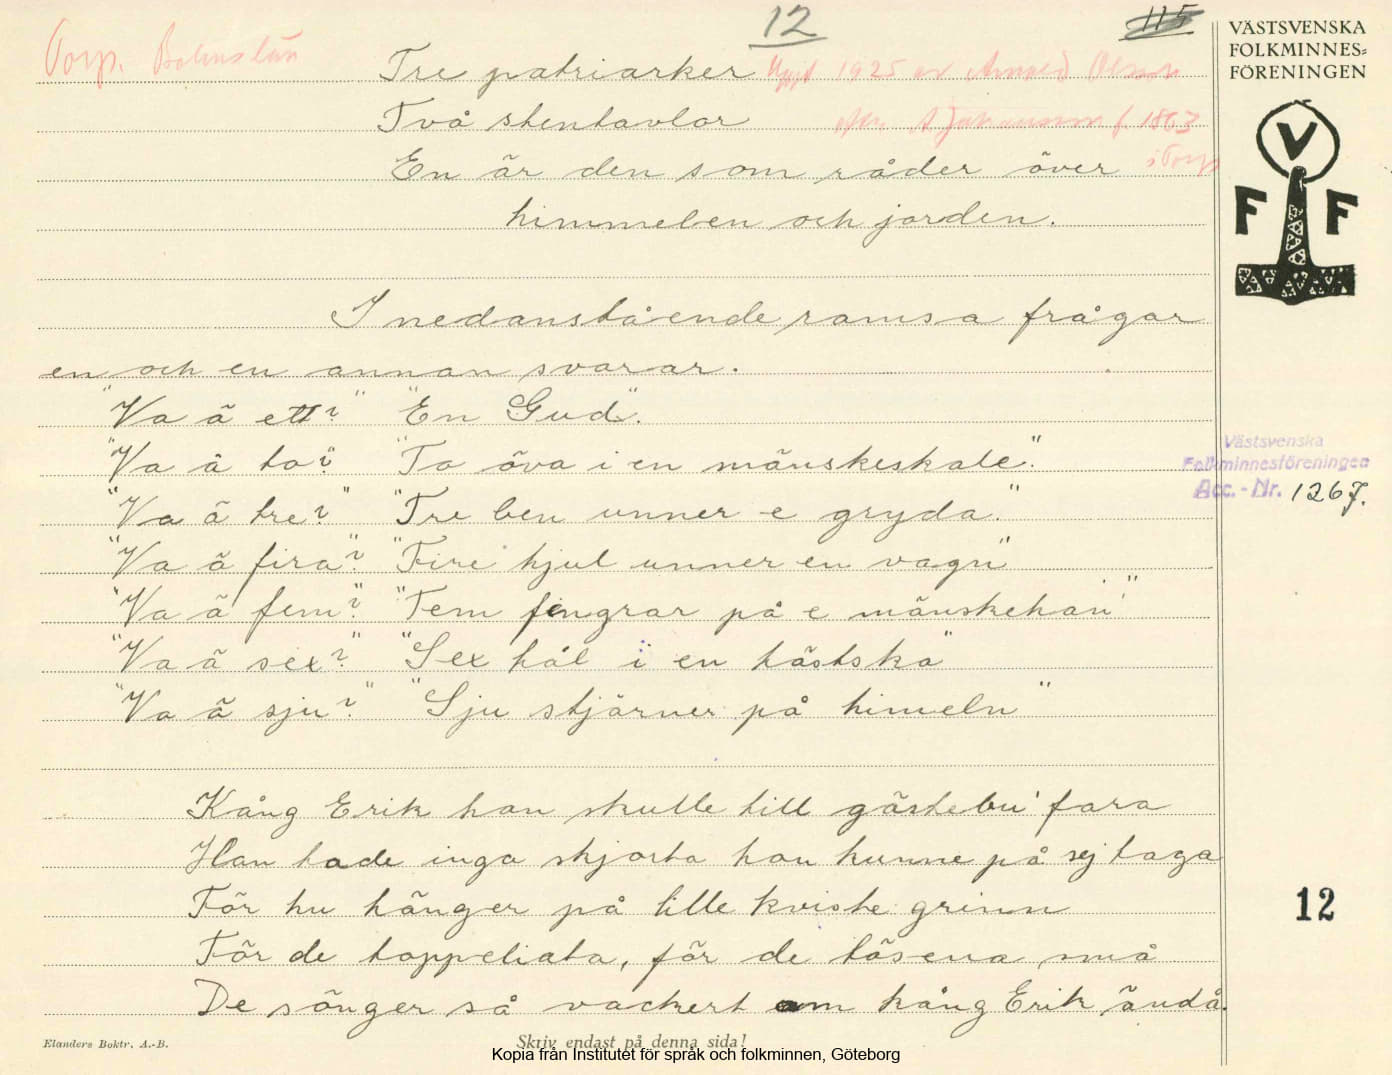 12
115
Torp. Bohuslän
Tre patriarker Uppt 1925 av Arnold Olsson
Två stentavlor av A Johansson f. 1863
En är den som råder över i Torp
himmelen och jorden.
I nedanstående ramsa frågar
en och en annan svarar.
"Va ä ett?" "En Gud".
"Va ä to?" "To öva i en mänskeskale".
"Va ä tre?" "Tre ben unner e gryda."
"Va ä fira"? "Fire hjul unner en vagn"
"Va ä fem"? "Fem fingrar på e mänskehan"
"Va ä sex?" "Sex hål i en hästsko"
"Va ä sju?" "Sju stjärner på himeln"
Kång Erik han skulle till gästebu' fara
Han hade inga skjorta han kunne på sej taga
För hu hänger på lille kviste grinn
För de toppeliata, för de tösena små
De sönger så vackert om kång Erik ändå.
VÄSTSVENSKA
FOLKMINNES=
FÖRENINGEN
V
F F
Västsvenska
Folkminnesföreningen
Acc.-Nr. 1267.
12
Elanders Boktr. A.-B.
Skriv endast på denna sida!
Kopia från Institutet för språk och folkminnen, Göteborg